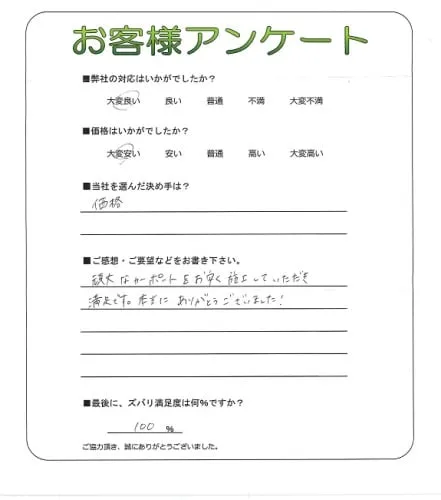 お客様アンケート
■弊社の対応はいかがでしたか？
大変良い 良い 普通 不満 大変不満
■価格はいかがでしたか？
大変安い 安い 普通 高い 大変高い
■当社を選んだ決め手は？
価格
■ご感想・ご要望などをお書き下さい。
なカーポートをお安く施工していただき
満足です。本当に ありがとうございました！
■最後に、ズバリ満足度は何%ですか？
100 %
ご協力頂き、誠にありがとうございました。